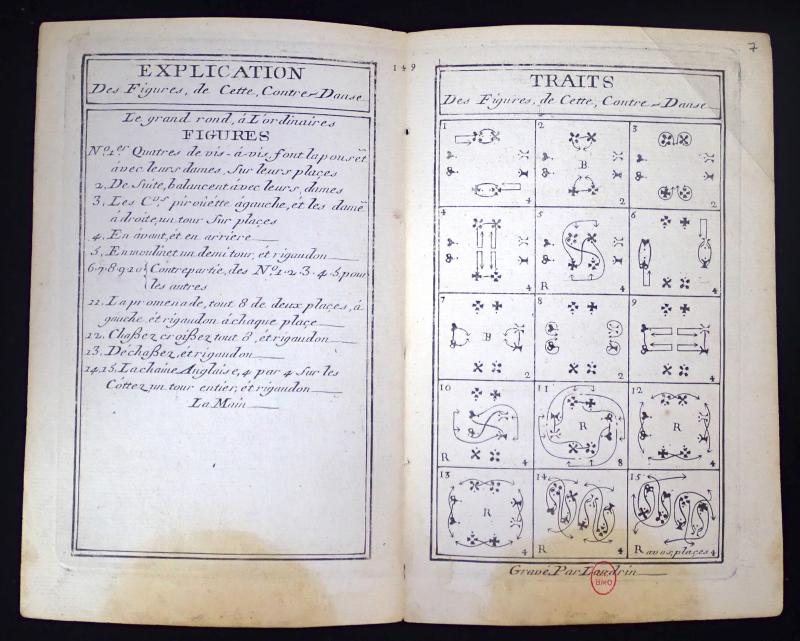 EXPLICATION
Des Figures, de Cette, Contre-Danse
Le grand rond, à L'ordinaires
FIGURES
No. 1er Quatres de vis-á-vis, font la pousét
ávec leurs dames, Sur leurs plaçes
2. De Suite, balancent ávec leurs, dames
3. Les Crs piroüétte ágauche, ét les damẽ
ádroite, un tour Sur plaçes
4. En ávant, ét en arriere
5. En moulinet un demi tour, ét rigaudon
6.7.8.9.10 Contrepartie, des No. 1.2.3.4.5, pour
les autres
11. La promenade, tout 8 de deux plaçes, á
gauche ét rigaudon áchaque plaçe
12. Chaßez croißez tout 8, ét rigaudon
13. Déchaßez, ét rigaudon
14.15. La chaine Anglaise, 4 par 4 Sur les
Côttez un tour entier, ét rigaudon
La Main
149
7
TRAITS
Des Figures, de Cette, Contre-Danse
1 2 3
B
4 2 2
4 5 6
4 R 4 4
7 8 9
B
2 2 4
10 11 12
R R
R 4 8 4
13 14 15
R
4 R 4 R avos, plaçes 4
Gravé, Par Landrin
BMO